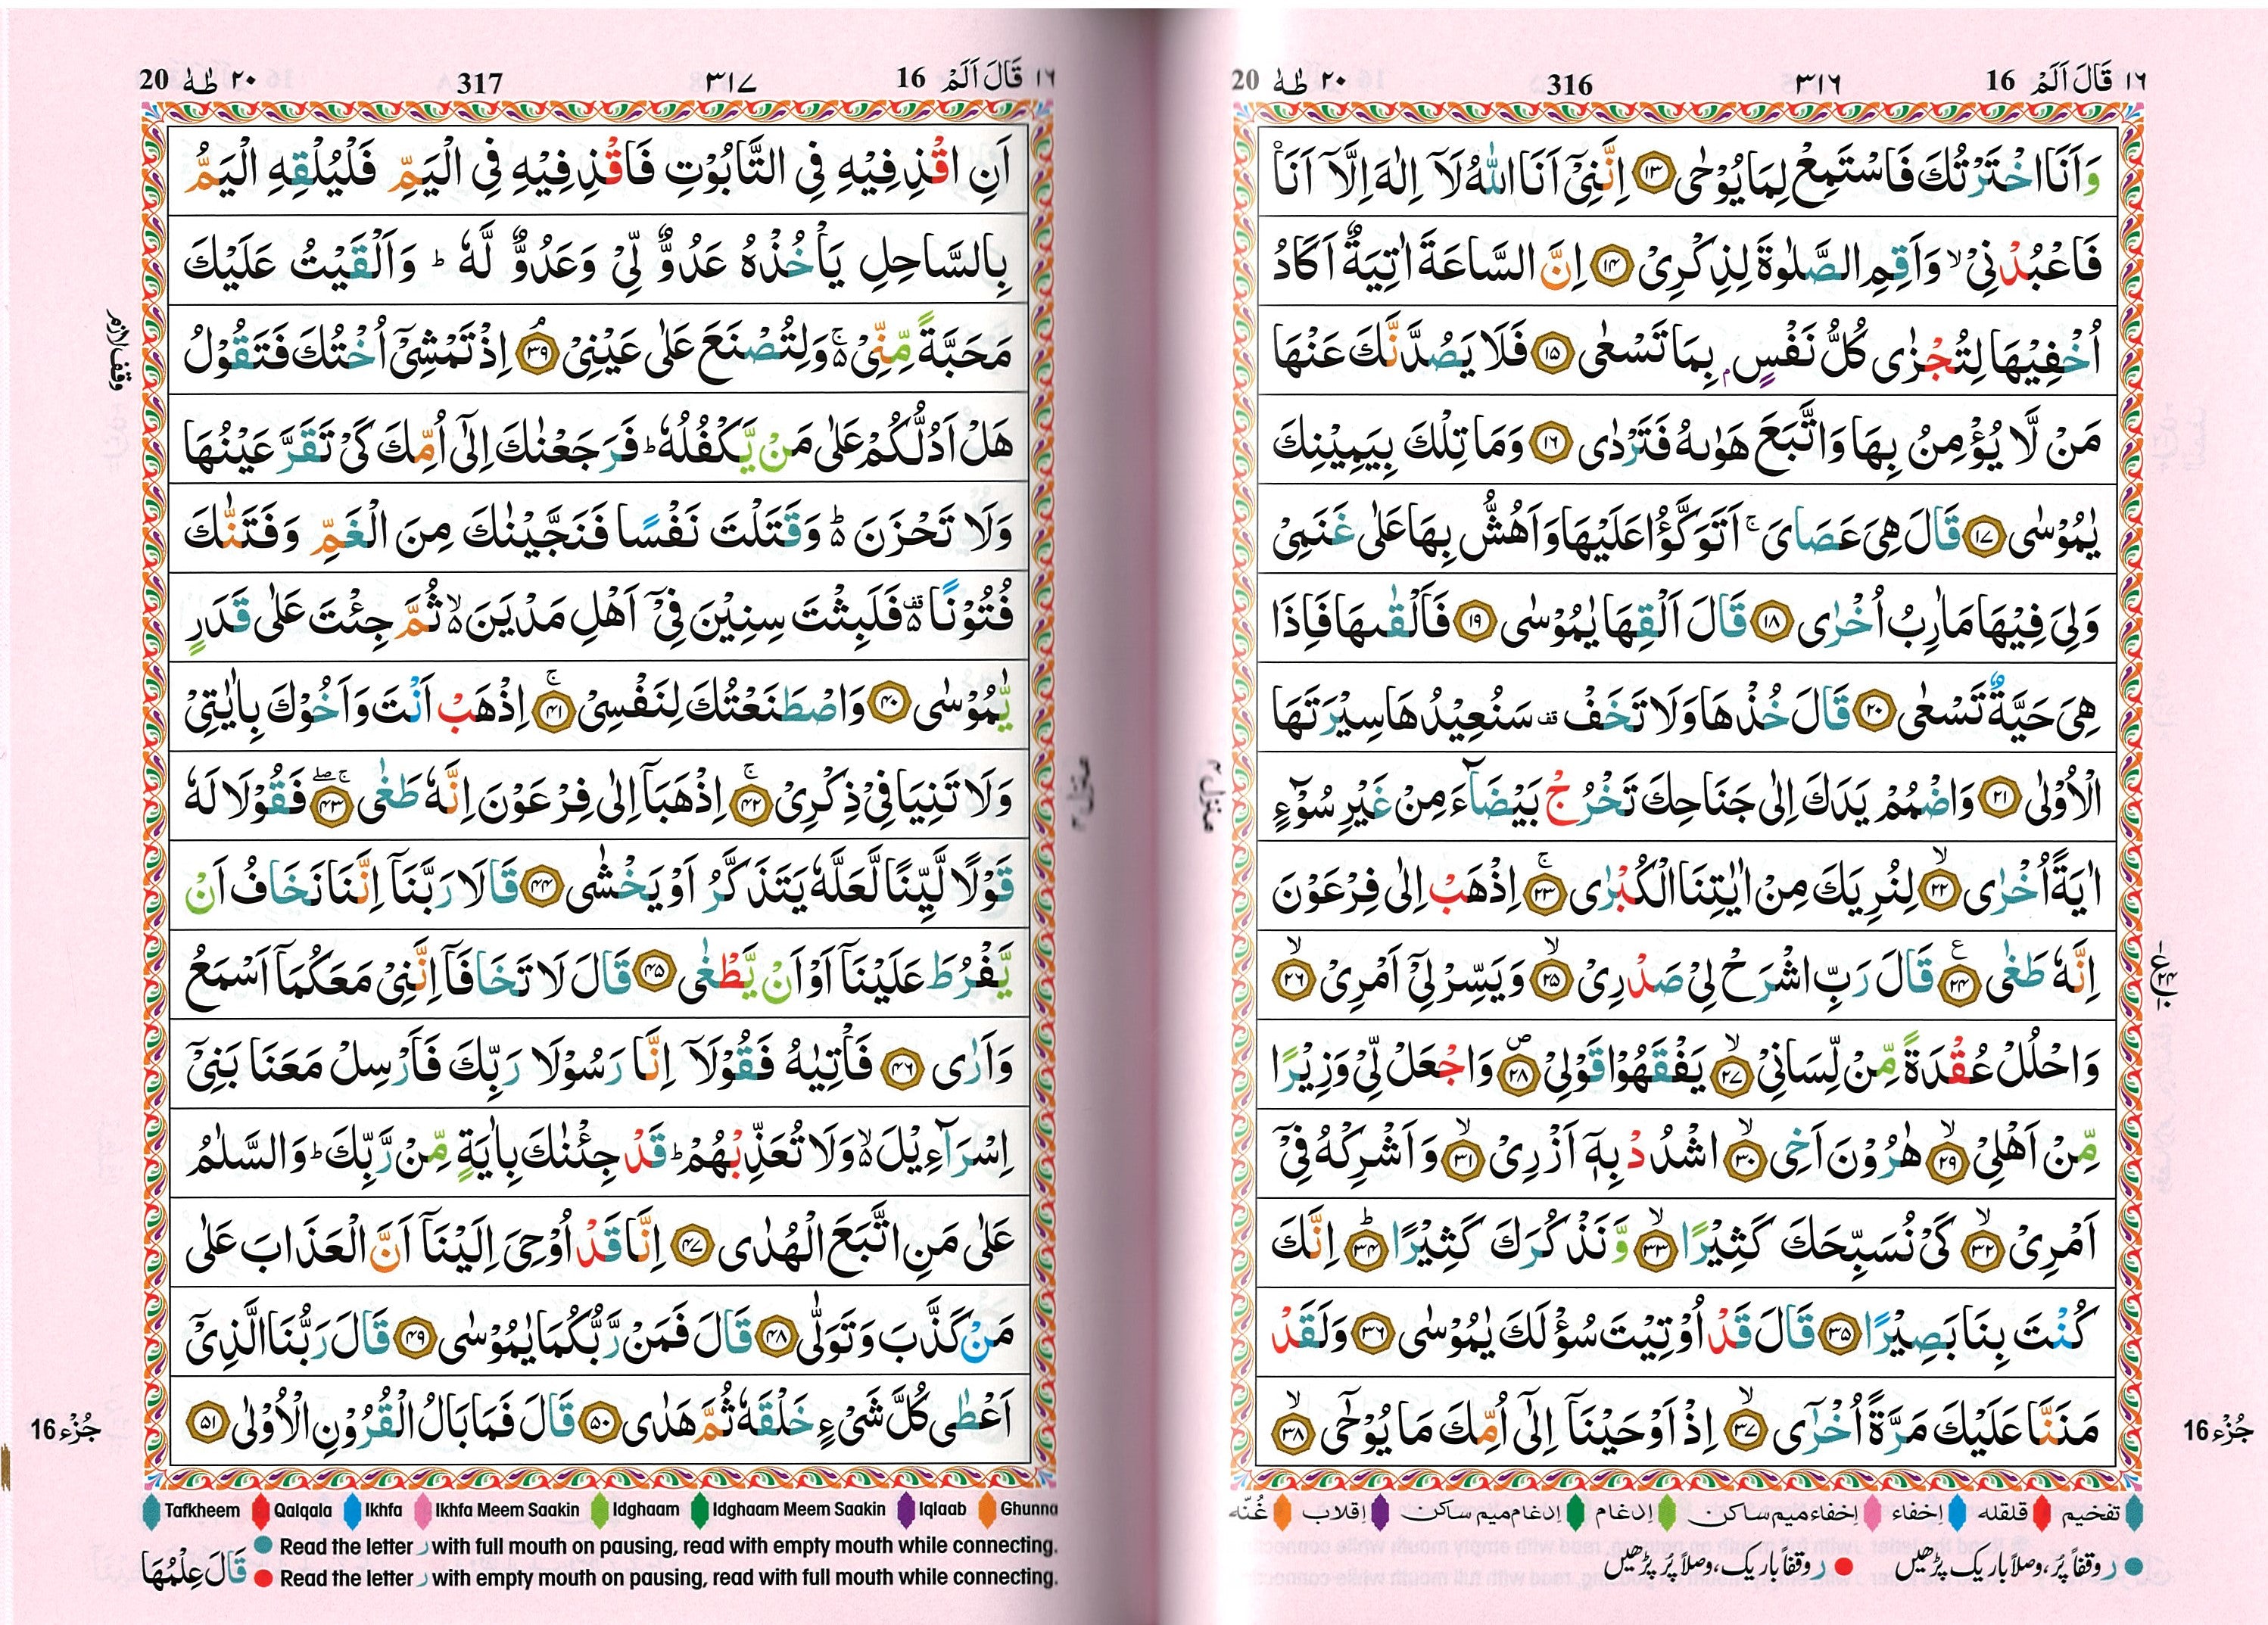 ١٦ قَالَ اَلَمْ 16 ٣١٦ 316 ٢٠ طٰهٰ 20
وَاَنَا اخْتَرْتُكَ فَاسْتَمِعْ لِمَا يُوْحٰى ۝١٣ اِنَّنِيْۤ اَنَا اللّٰهُ لَاۤ اِلٰهَ اِلَّاۤ اَنَا۠
فَاعْبُدْنِيْ ۙ وَاَقِمِ الصَّلٰوةَ لِذِكْرِيْ ۝١٤ اِنَّ السَّاعَةَ اٰتِيَةٌ اَكَادُ
اُخْفِيْهَا لِتُجْزٰى كُلُّ نَفْسٍۭ بِمَا تَسْعٰى ۝١٥ فَلَا يَصُدَّنَّكَ عَنْهَا
مَنْ لَّا يُؤْمِنُ بِهَا وَاتَّبَعَ هَوٰىهُ فَتَرْدٰى ۝١٦ وَمَا تِلْكَ بِيَمِيْنِكَ
يٰمُوْسٰى ۝١٧ قَالَ هِيَ عَصَايَ ۚ اَتَوَكَّؤُا عَلَيْهَا وَاَهُشُّ بِهَا عَلٰى غَنَمِيْ
وَلِيَ فِيْهَا مَاٰرِبُ اُخْرٰى ۝١٨ قَالَ اَلْقِهَا يٰمُوْسٰى ۝١٩ فَاَلْقٰىهَا فَاِذَا
هِيَ حَيَّةٌ تَسْعٰى ۝٢٠ قَالَ خُذْهَا وَلَا تَخَفْ ۥقف سَنُعِيْدُهَا سِيْرَتَهَا
الْاُوْلٰى ۝٢١ وَاضْمُمْ يَدَكَ اِلٰى جَنَاحِكَ تَخْرُجْ بَيْضَآءَ مِنْ غَيْرِ سُوْٓءٍ
اٰيَةً اُخْرٰى ۝٢٢ۙ لِنُرِيَكَ مِنْ اٰيٰتِنَا الْكُبْرٰى ۝٢٣ۚ اِذْهَبْ اِلٰى فِرْعَوْنَ
اِنَّهٗ طَغٰى ۝٢٤ قَالَ رَبِّ اشْرَحْ لِيْ صَدْرِيْ ۝٢٥ۙ وَيَسِّرْ لِيْۤ اَمْرِيْ ۝٢٦ۙ
وَاحْلُلْ عُقْدَةً مِّنْ لِّسَانِيْ ۝٢٧ۙ يَفْقَهُوْا قَوْلِيْ ۝٢٨ وَاجْعَلْ لِّيْ وَزِيْرًا
مِّنْ اَهْلِيْ ۝٢٩ۙ هٰرُوْنَ اَخِي ۝٣٠ۙ اشْدُدْ بِهٖۤ اَزْرِيْ ۝٣١ۙ وَاَشْرِكْهُ فِيْۤ
اَمْرِيْ ۝٣٢ۙ كَيْ نُسَبِّحَكَ كَثِيْرًا ۝٣٣ۙ وَّنَذْكُرَكَ كَثِيْرًا ۝٣٤ؕ اِنَّكَ
كُنْتَ بِنَا بَصِيْرًا ۝٣٥ قَالَ قَدْ اُوْتِيْتَ سُؤْلَكَ يٰمُوْسٰى ۝٣٦ وَلَقَدْ
مَنَنَّا عَلَيْكَ مَرَّةً اُخْرٰۤى ۝٣٧ۙ اِذْ اَوْحَيْنَاۤ اِلٰۤى اُمِّكَ مَا يُوْحٰۤى ۝٣٨ۙ
منزل ٤
جُزْء 16
تفخیم قلقلہ إخفاء إخفاء میم ساکن إدغام إدغام میم ساکن إقلاب غُنّہ
ر وقفاً پُر، وصلاً باریک پڑھیں ر وقفاً باریک، وصلاً پُر پڑھیں
١٦ قَالَ اَلَمْ 16 ٣١٧ 317 ٢٠ طٰهٰ 20
اَنِ اقْذِفِيْهِ فِى التَّابُوْتِ فَاقْذِفِيْهِ فِى الْيَمِّ فَلْيُلْقِهِ الْيَمُّ
بِالسَّاحِلِ يَاْخُذْهُ عَدُوٌّ لِّيْ وَعَدُوٌّ لَّهٗ ؕ وَاَلْقَيْتُ عَلَيْكَ
مَحَبَّةً مِّنِّيْ ۚ۬ وَلِتُصْنَعَ عَلٰى عَيْنِيْ ۝٣٩ۘ اِذْ تَمْشِيْۤ اُخْتُكَ فَتَقُوْلُ
هَلْ اَدُلُّكُمْ عَلٰى مَنْ يَّكْفُلُهٗ ؕ فَرَجَعْنٰكَ اِلٰۤى اُمِّكَ كَيْ تَقَرَّ عَيْنُهَا
وَلَا تَحْزَنَ ؕ۬ وَقَتَلْتَ نَفْسًا فَنَجَّيْنٰكَ مِنَ الْغَمِّ وَفَتَنّٰكَ
فُتُوْنًا ۬قف فَلَبِثْتَ سِنِيْنَ فِيْۤ اَهْلِ مَدْيَنَ ۙ۬ ثُمَّ جِئْتَ عَلٰى قَدَرٍ
يّٰمُوْسٰى ۝٤٠ وَاصْطَنَعْتُكَ لِنَفْسِيْ ۝٤١ۚ اِذْهَبْ اَنْتَ وَاَخُوْكَ بِاٰيٰتِيْ
وَلَا تَنِيَا فِيْ ذِكْرِيْ ۝٤٢ۚ اِذْهَبَاۤ اِلٰى فِرْعَوْنَ اِنَّهٗ طَغٰى ۝٤٣ۚۖ فَقُوْلَا لَهٗ
قَوْلًا لَّيِّنًا لَّعَلَّهٗ يَتَذَكَّرُ اَوْ يَخْشٰى ۝٤٤ قَالَا رَبَّنَاۤ اِنَّنَا نَخَافُ اَنْ
يَّفْرُطَ عَلَيْنَاۤ اَوْ اَنْ يَّطْغٰى ۝٤٥ قَالَ لَا تَخَافَاۤ اِنَّنِيْ مَعَكُمَاۤ اَسْمَعُ
وَاَرٰى ۝٤٦ فَاْتِيٰهُ فَقُوْلَاۤ اِنَّا رَسُوْلَا رَبِّكَ فَاَرْسِلْ مَعَنَا بَنِيْۤ
اِسْرَآءِيْلَ ۙ۬ وَلَا تُعَذِّبْهُمْ ؕ قَدْ جِئْنٰكَ بِاٰيَةٍ مِّنْ رَّبِّكَ ؕ وَالسَّلٰمُ
عَلٰى مَنِ اتَّبَعَ الْهُدٰى ۝٤٧ اِنَّا قَدْ اُوْحِيَ اِلَيْنَاۤ اَنَّ الْعَذَابَ عَلٰى
مَنْ كَذَّبَ وَتَوَلّٰى ۝٤٨ قَالَ فَمَنْ رَّبُّكُمَا يٰمُوْسٰى ۝٤٩ قَالَ رَبُّنَا الَّذِيْۤ
اَعْطٰى كُلَّ شَيْءٍ خَلْقَهٗ ثُمَّ هَدٰى ۝٥٠ قَالَ فَمَا بَالُ الْقُرُوْنِ الْاُوْلٰى ۝٥١
وقف لازم
منزل ٤
جُزْء 16
Tafkheem Qalqala Ikhfa Ikhfa Meem Saakin Idghaam Idghaam Meem Saakin Iqlaab Ghunna
Read the letter ر with full mouth on pausing, read with empty mouth while connecting.
Read the letter ر with empty mouth on pausing, read with full mouth while connecting.
قَالَ عِلْمُهَا